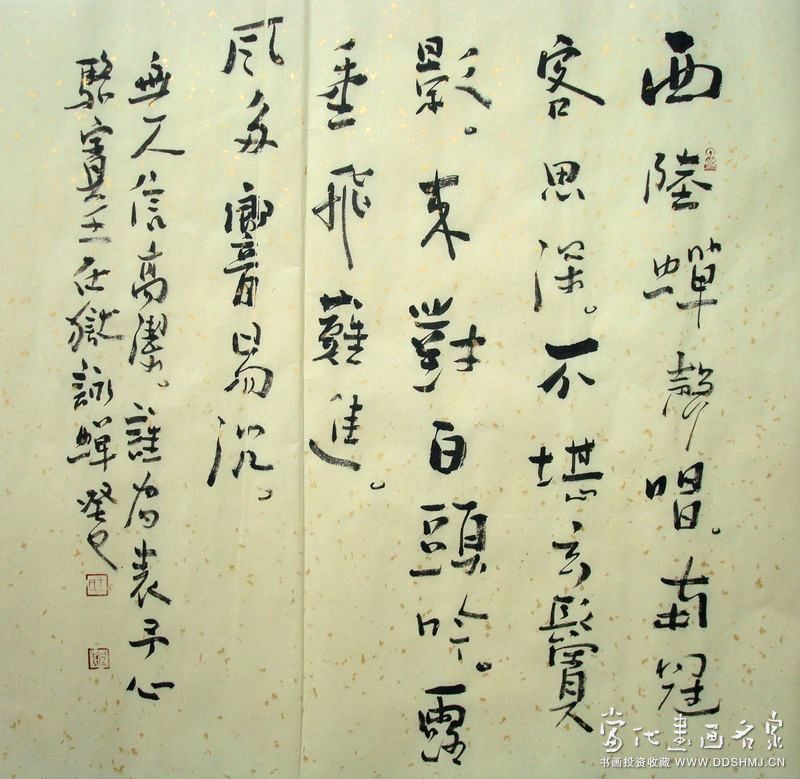 西陸蟬聲唱。南冠
客思深。不堪玄鬢
影。来對白頭吟。露
重飛難進。
風多響易沉。
無人信高潔。誰為表予心
駱賓王在獄詠蟬 癸巳
當代書画名家
书画投资收藏 WWW.DDSHMJ.CN